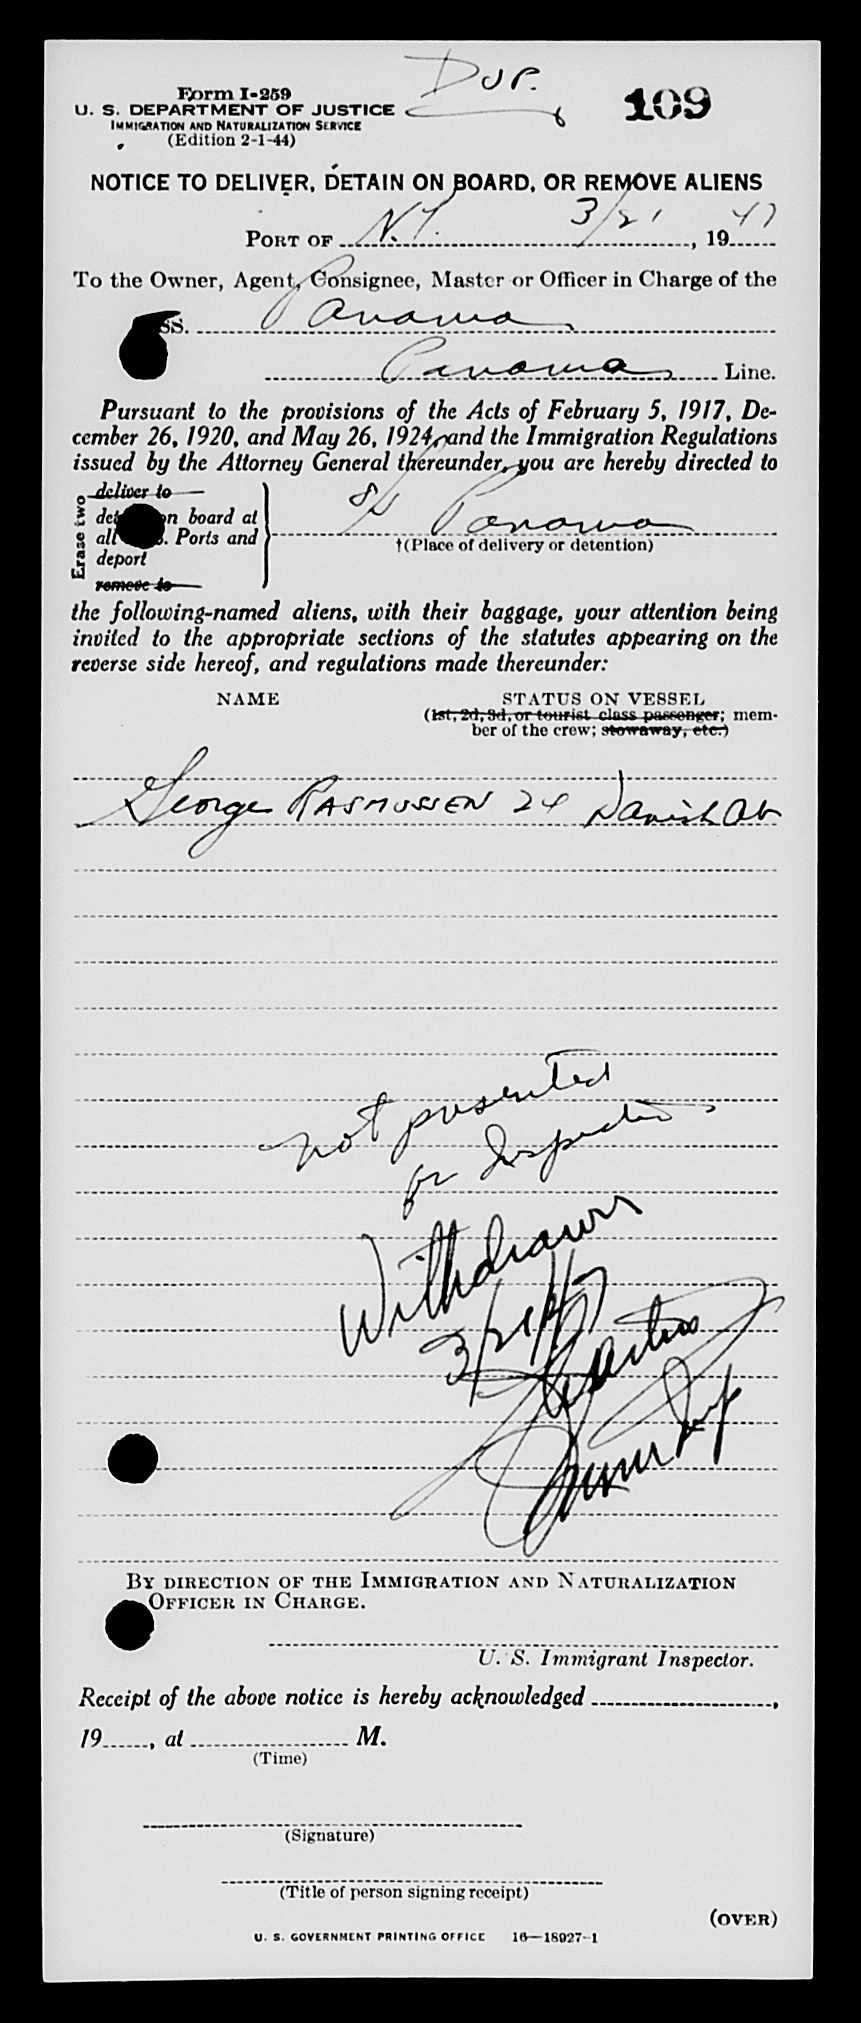 Dup.
Form I-259
109
U. S. DEPARTMENT OF JUSTICE
IMMIGRATION AND NATURALIZATION SERVICE
(Edition 2-1-44)
NOTICE TO DELIVER, DETAIN ON BOARD, OR REMOVE ALIENS
PORT OF N.Y. 3/21, 1947
To the Owner, Agent, Consignee, Master or Officer in Charge of the
SS. Panama
Panama Line.
Pursuant to the provisions of the Acts of February 5, 1917, De-
cember 26, 1920, and May 26, 1924, and the Immigration Regulations
issued by the Attorney General thereunder, you are hereby directed to
Erase two
deliver to
on board at
all Ports and
deport
remove to
S/S Panama
†(Place of delivery or detention)
the following-named aliens, with their baggage, your attention being
invited to the appropriate sections of the statutes appearing on the
reverse side hereof, and regulations made thereunder:
NAME STATUS ON VESSEL
(1st, 2d, 3d, or tourist class passenger; mem-
ber of the crew; stowaway, etc.)
George RASMUSSEN 24 Danish AB
not presented
for Inspection
Withdrawn
3/21/47
BY DIRECTION OF THE IMMIGRATION AND NATURALIZATION
OFFICER IN CHARGE.
U. S. Immigrant Inspector.
Receipt of the above notice is hereby acknowledged ,
19 , at M.
(Time)
(Signature)
(Title of person signing receipt)
(OVER)
U. S. GOVERNMENT PRINTING OFFICE 16—18927-1